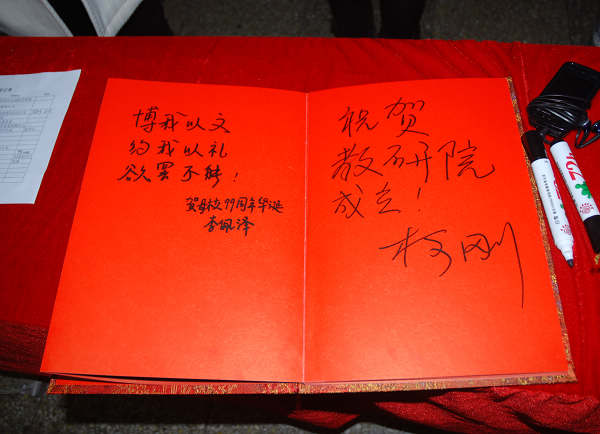 博我以文
约我以礼
欲罢不能！
贺母校99周年华诞
李佩泽
祝贺
教研院
成立！
柯刚